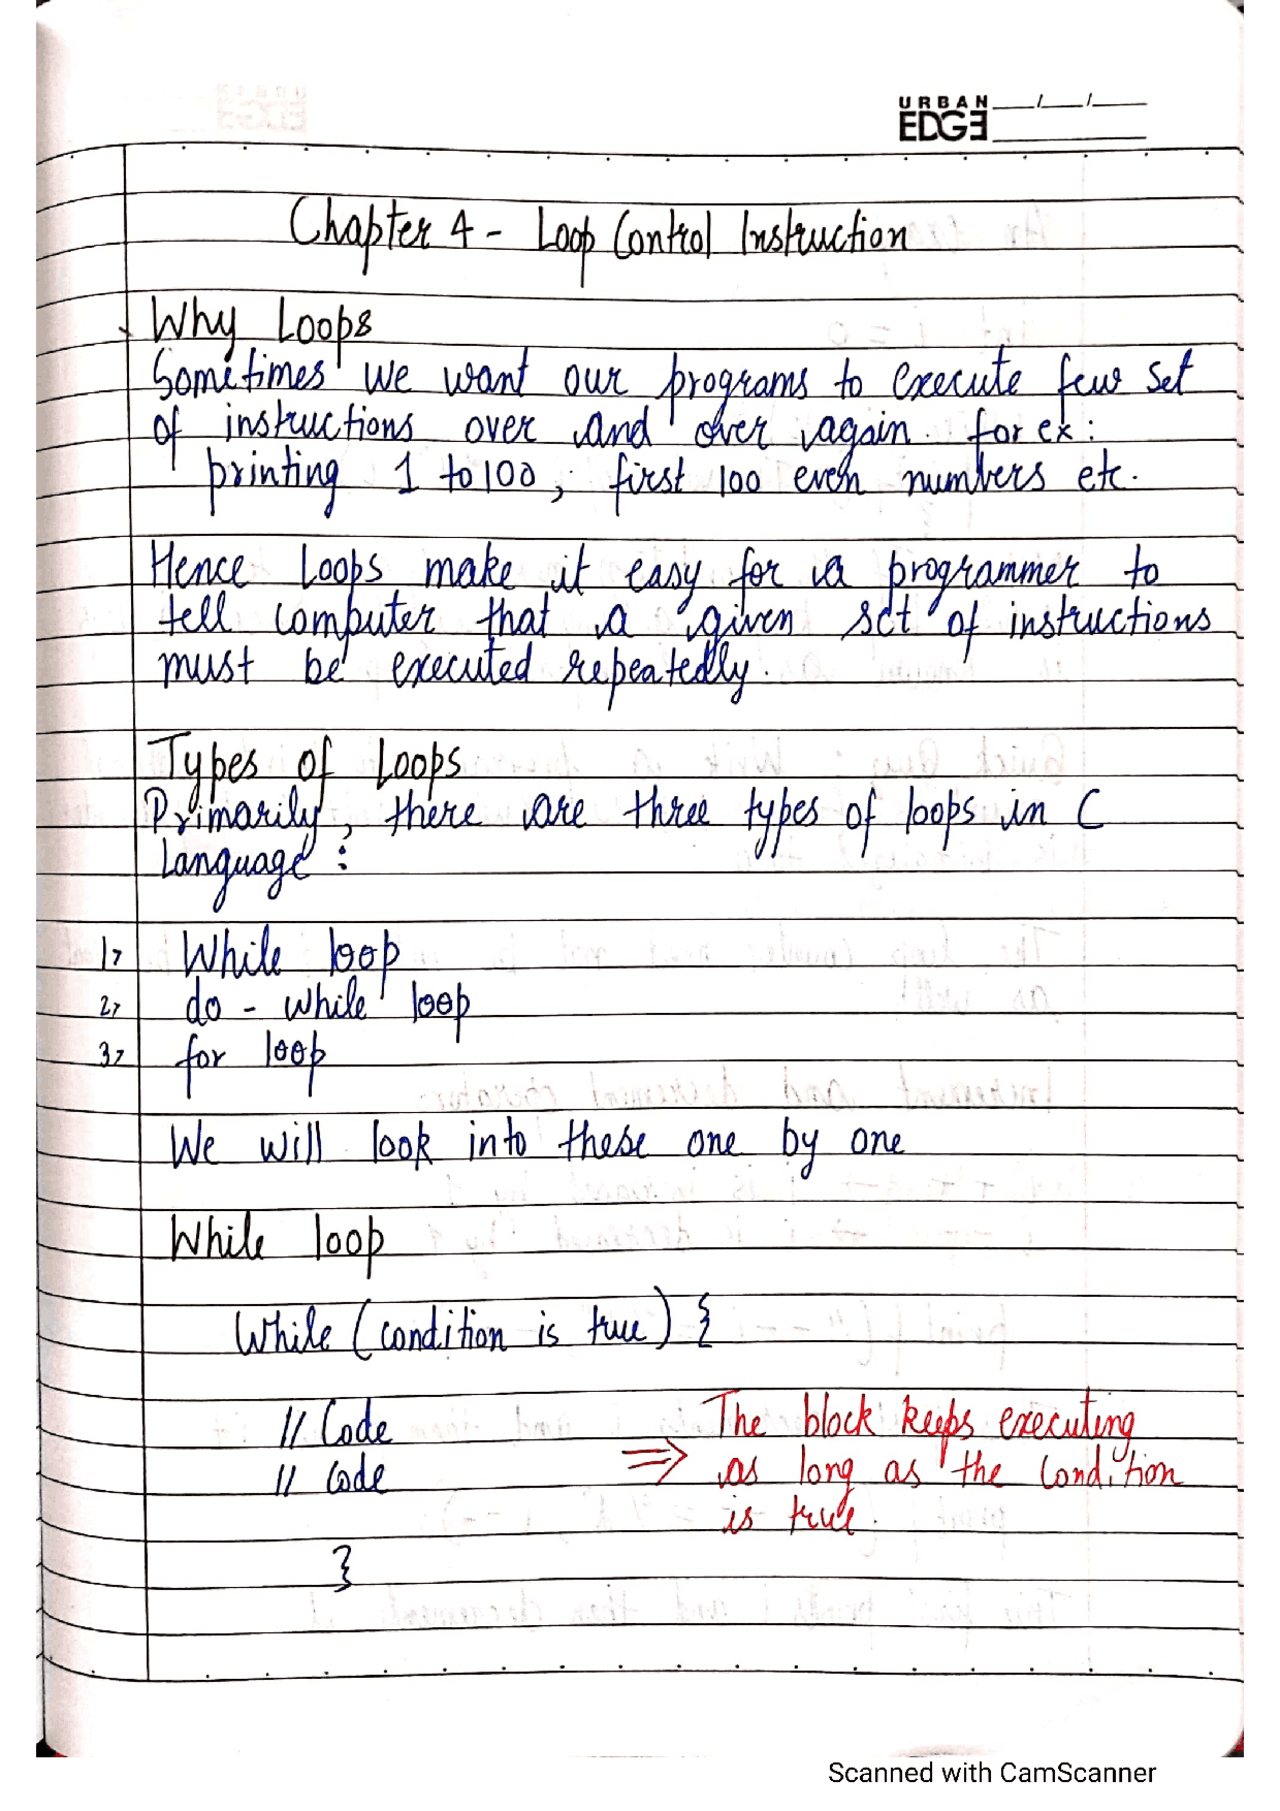 URBAN
EDGE
Chapter 4 - Loop Control Instruction
Why Loops
Sometimes we want our programs to execute few set
of instructions over and over again. for ex:
printing 1 to 100, first 100 even numbers etc.
Hence Loops make it easy for a programmer to
tell computer that a given set of instructions
must be executed repeatedly.
Types of Loops
Primarily, there are three types of loops in C
Language:
1> While loop
2> do - while loop
3> for loop
We will look into these one by one
While loop
While (condition is true) {
// Code
// Code
⇒ The block keeps executing
as long as the Condition
is true.
}
Scanned with CamScanner